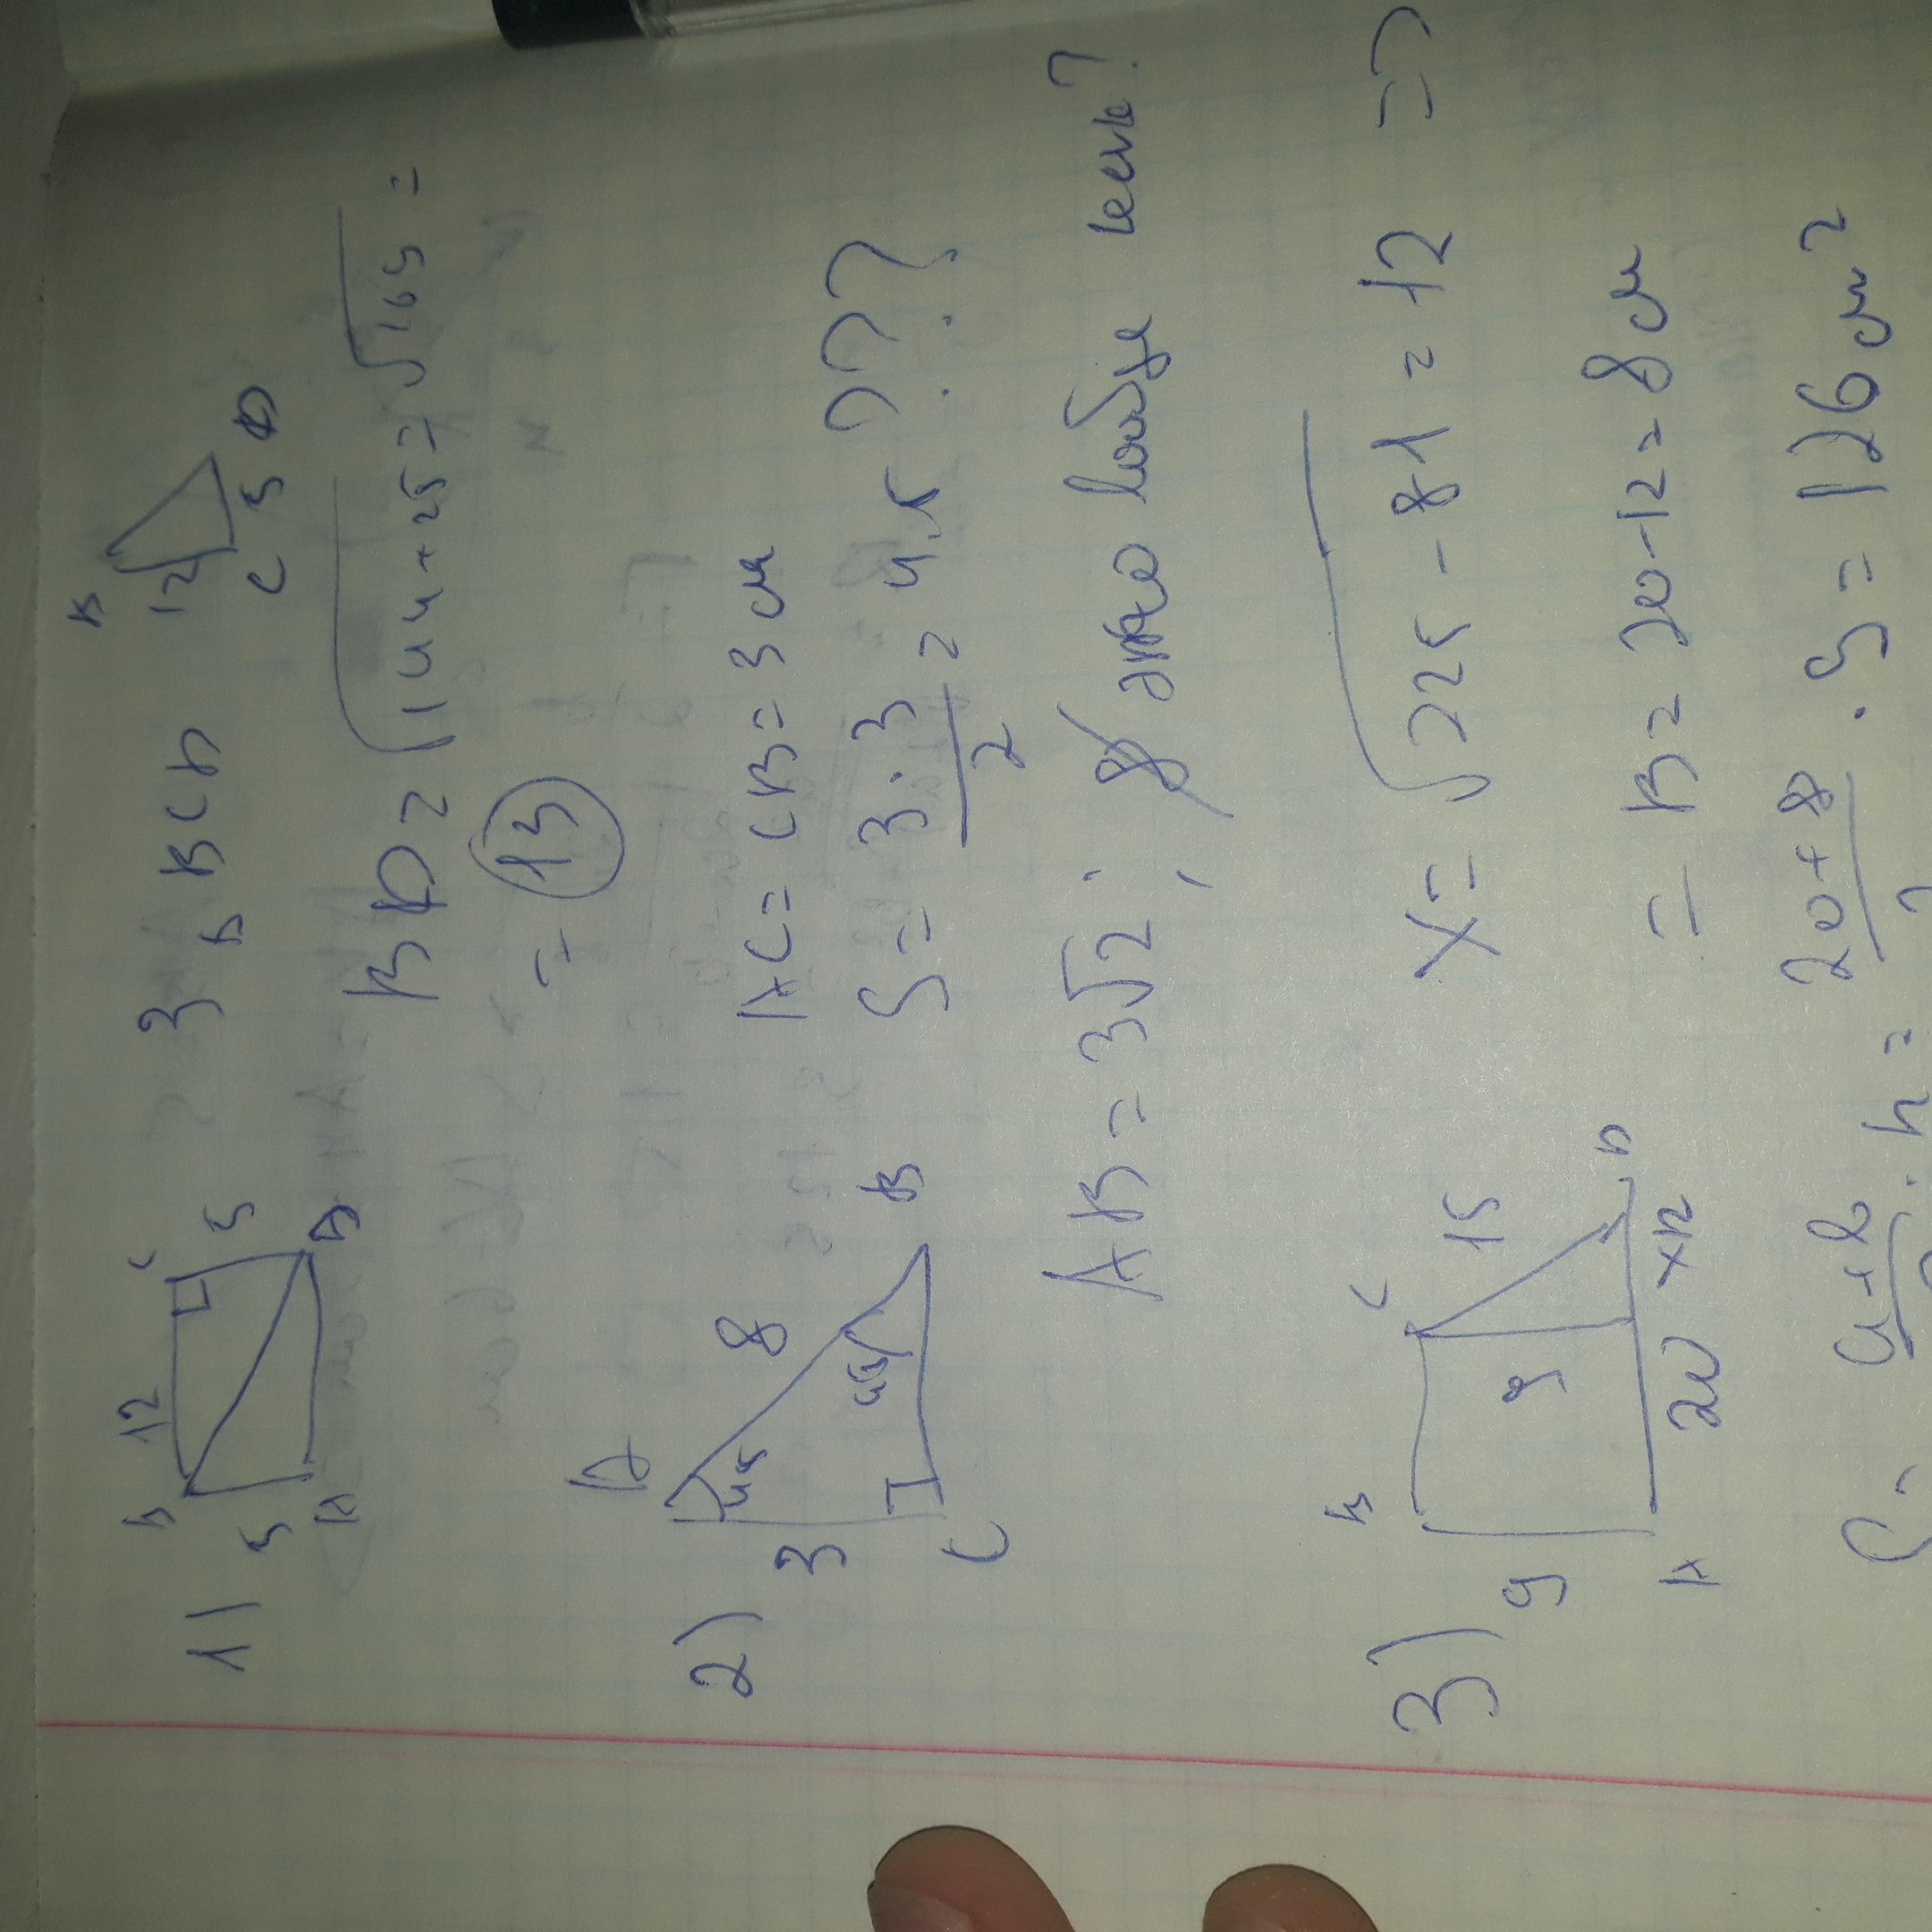 1) B 12 C
5 5
A D
З B BCD
B
12
C 5 D
BD = √144+25 = √169 =
= 13
2) A
3 45 8
45
C B
AC = CB = 3 см
S = 3·3/2 = 4.5 ???
AB = 3√2 ; это вообще
3) B C
9 9 15
A 20 x12 D
x = √225-81 = 12 =>
= B = 20-12 = 8 см
a+b/2 · h = 20+8/2 · 9 = 126 см²